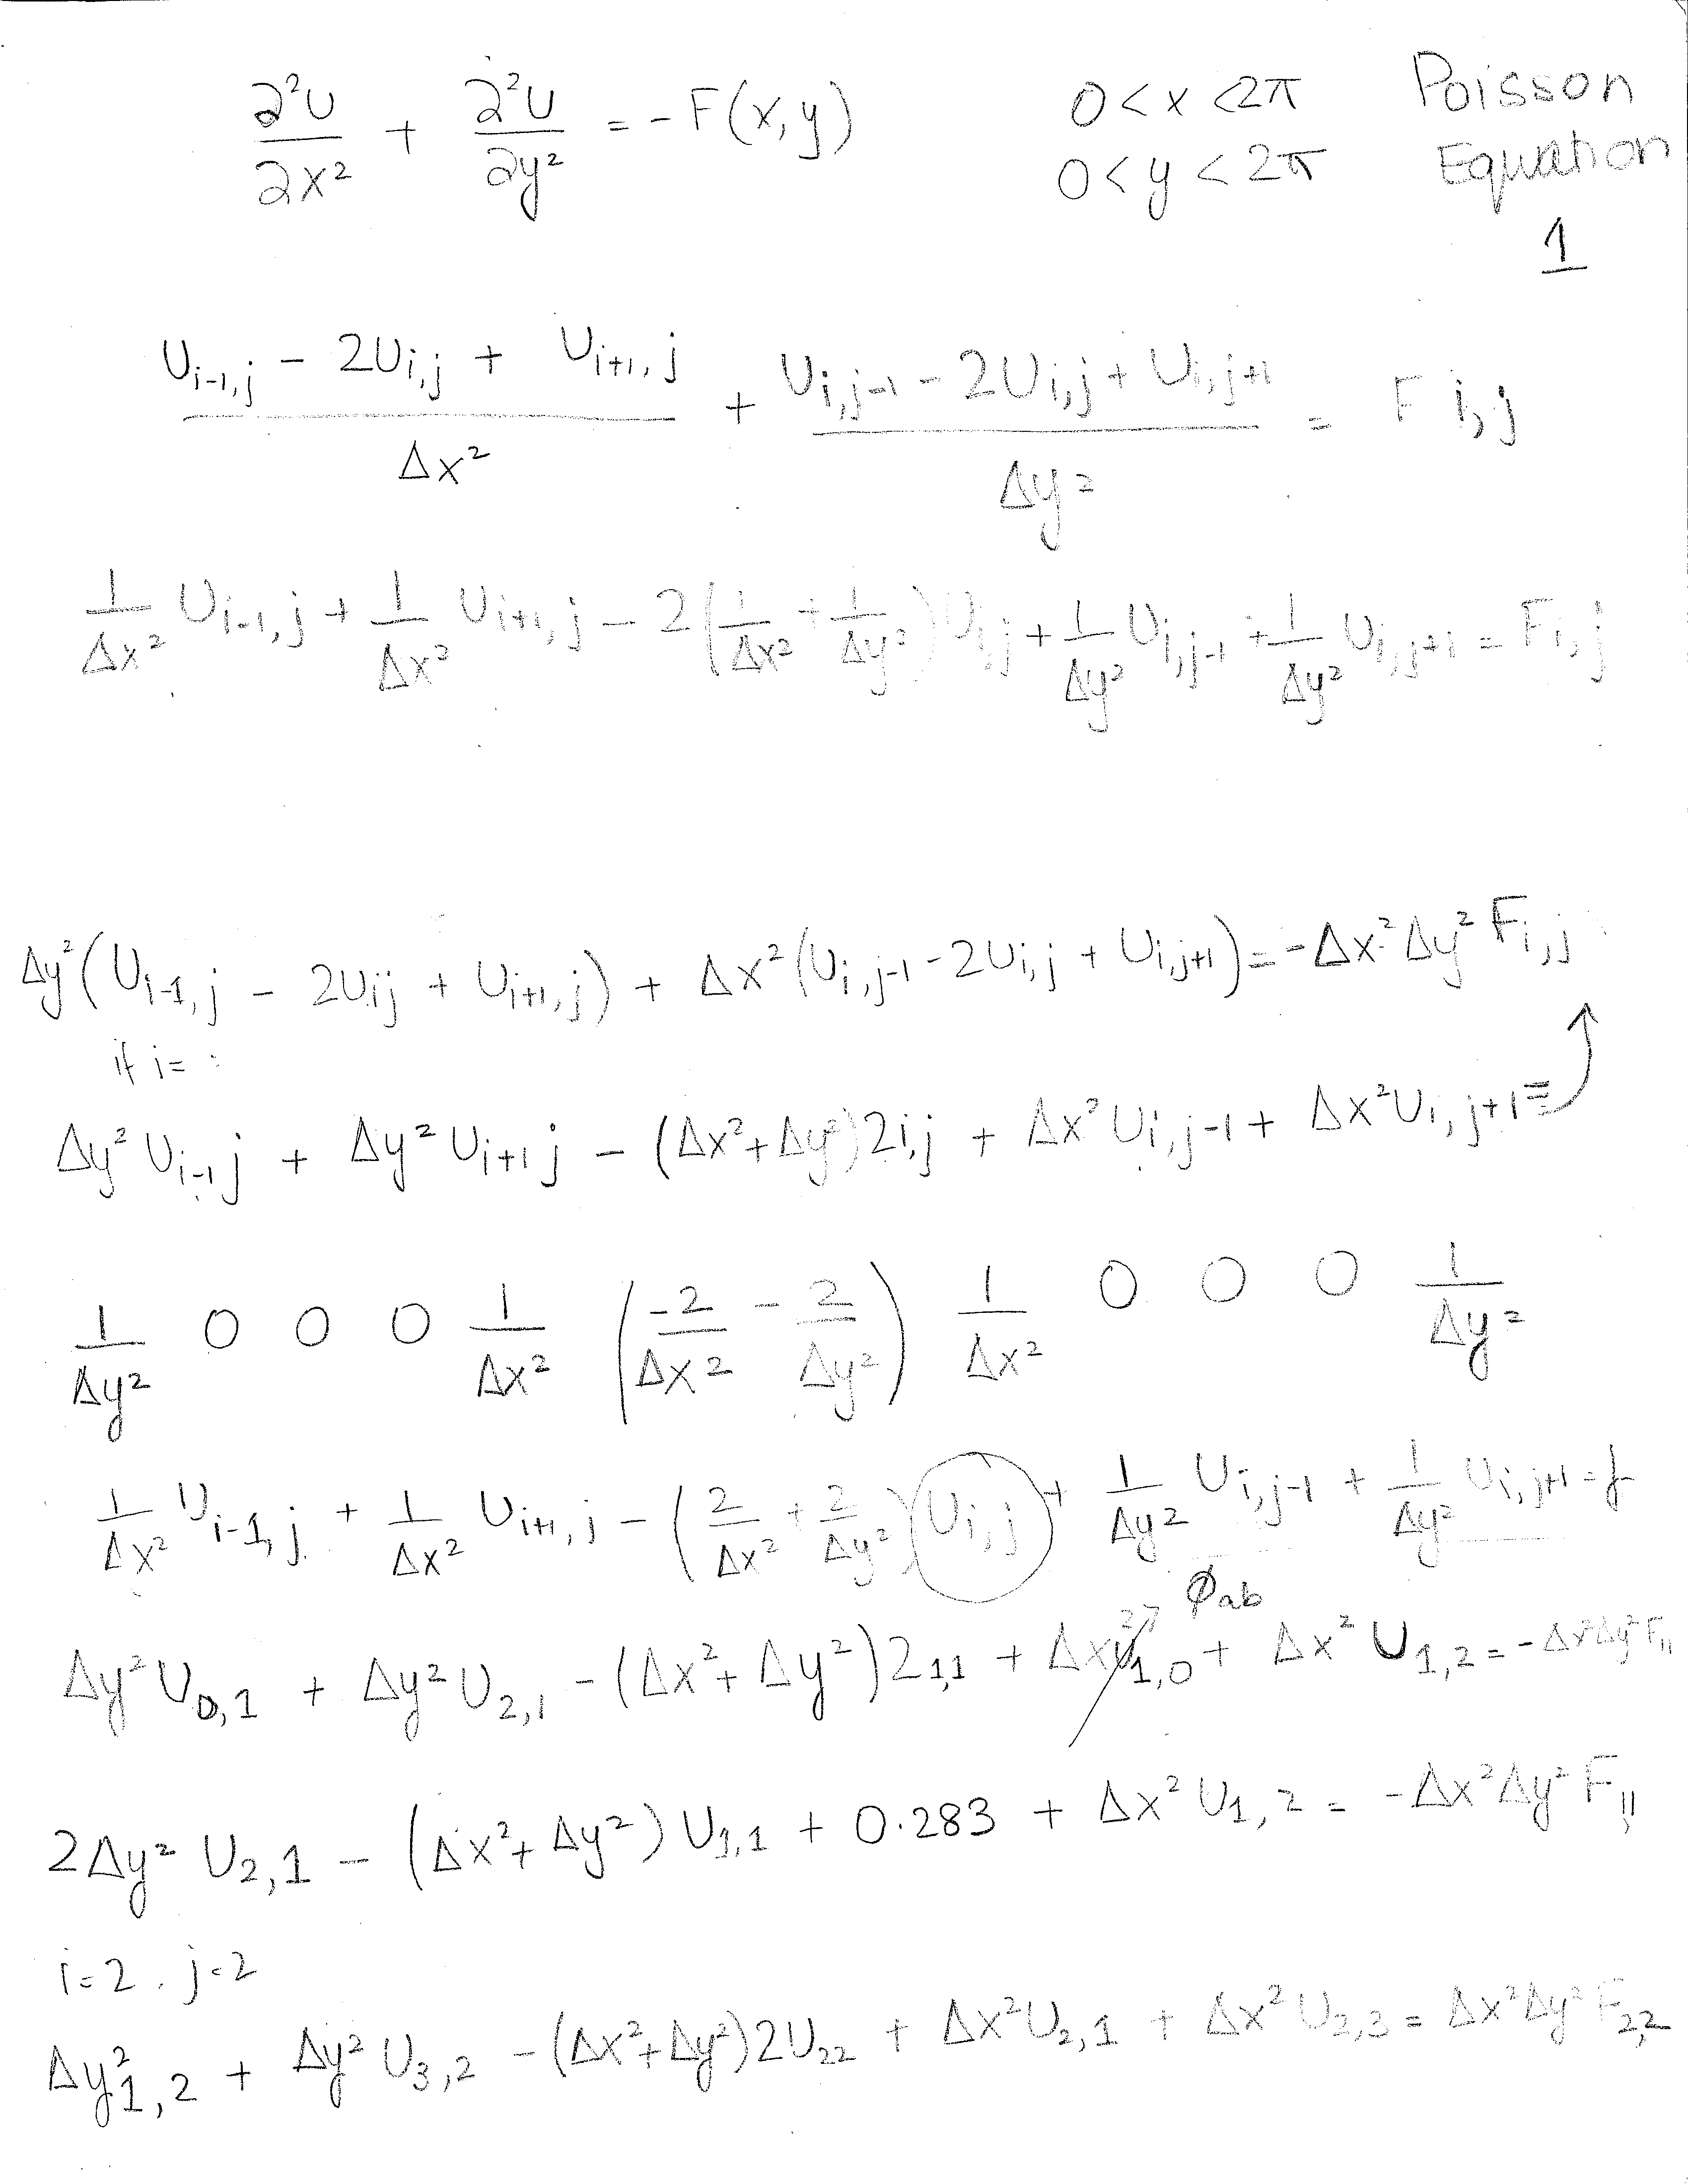 ∂²U/∂x² + ∂²U/∂y² = -F(x,y) 0<x<2π Poisson
0<y<2π Equation
1
(U_{i-1,j} - 2U_{i,j} + U_{i+1,j})/Δx² + (U_{i,j-1} - 2U_{i,j} + U_{i,j+1})/Δy² = F_{i,j}
1/Δx² U_{i-1,j} + 1/Δx² U_{i+1,j} - 2(1/Δx² + 1/Δy²)U_{i,j} + 1/Δy² U_{i,j-1} + 1/Δy² U_{i,j+1} = F_{i,j}
Δy²(U_{i-1,j} - 2U_{ij} + U_{i+1,j}) + Δx²(U_{i,j-1} - 2U_{i,j} + U_{i,j+1}) = -Δx²Δy² F_{i,j}
if i=
Δy² U_{i-1,j} + Δy² U_{i+1,j} - (Δx²+Δy²)2_{i,j} + Δx² U_{i,j-1} + Δx² U_{i,j+1} =
1/Δy² 0 0 0 1/Δx² (-2/Δx² - 2/Δy²) 1/Δx² 0 0 0 1/Δy²
1/Δx² U_{i-1,j} + 1/Δx² U_{i+1,j} - (2/Δx² + 2/Δy²)U_{i,j} + 1/Δy² U_{i,j-1} + 1/Δy² U_{i,j+1} = f
φab
Δy² U_{0,1} + Δy² U_{2,1} - (Δx²+Δy²)2_{1,1} + ΔxU_{1,0} + Δx² U_{1,2} = -Δx²Δy² F_{11}
2Δy² U_{2,1} - (Δx²+Δy²)U_{1,1} + 0.283 + Δx² U_{1,2} = -Δx²Δy² F_{11}
i=2, j=2
Δy²_{1,2} + Δy² U_{3,2} - (Δx²+Δy²)2U_{22} + Δx² U_{2,1} + Δx² U_{2,3} = Δx²Δy² F_{2,2}